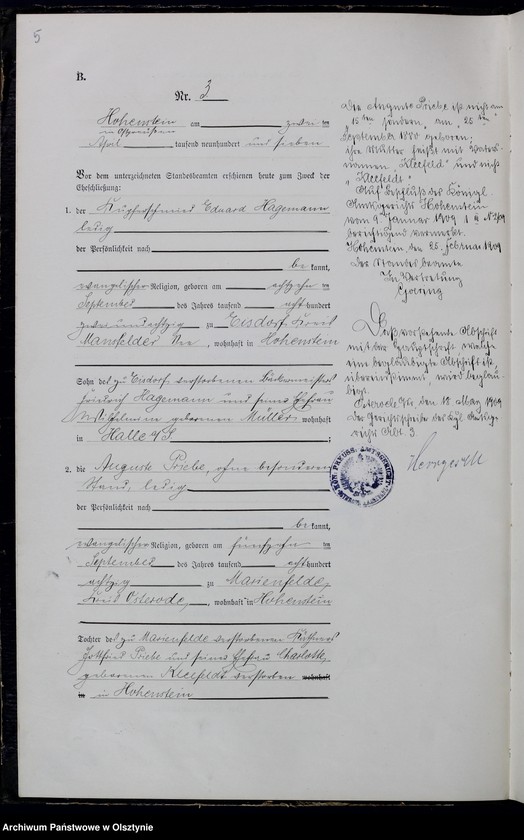 5
B.
Nr. 3
Hohenstein am zwei ten
in Ostpreußen
April tausend neunhundert und sieben
Vor dem unterzeichneten Standesbeamten erschienen heute zum Zweck der
Eheschließung:
1. der Kupferschmied Eduard Hagemann
ledig
der Persönlichkeit nach
be kannt,
evangelischer Religion, geboren am achtzehn ten
September des Jahres tausend acht hundert
zweiundachtzig zu Eisdorf, Kreis
Mansfelder See, wohnhaft in Hohenstein
Sohn des zu Eisdorf verstorbenen Bäckermeisters
Friedrich Hagemann und seiner Ehefrau
Wilhelmine geborenen Müller wohnhaft
in Halle a/S ;
2. die Auguste Priebe, ohne besonderen
Stand, ledig
der Persönlichkeit nach
be kannt,
evangelischer Religion, geboren am fünfzehn ten
September des Jahres tausend acht hundert
achtzig zu Marienfelde,
Kreis Osterode, wohnhaft in Hohenstein
Tochter des zu Marienfelde verstorbenen
Gottfried Priebe und seiner Ehefrau Charlotte,
geborenen Kleefeldt verstorben wohnhaft
in in Hohenstein
Die Auguste Priebe ist nicht am
15ten sondern am "25ten"
September 1880 geboren,
ihre Mutter heißt mit Vaters-
namen "Kleefeld" und nicht
"Kleefeldt".
Auf Beschluß des Königl.
Amtsgerichts Hohenstein
vom 9. Januar 1909
berichtigend vermerkt.
Hohenstein den 25. Februar 1909
Der Standesbeamte
In Vertretung
Goering
Daß vorstehende Abschrift
mit der Hauptschrift, welche
eine beglaubigte Abschrift ist,
übereinstimmt, wird beglau-
bigt.
Osterode den 12. May 1909
Der Gerichtsschreiber des Kgl. Amtsge-
richts Abt. 3.
Archiwum Państwowe w Olsztynie